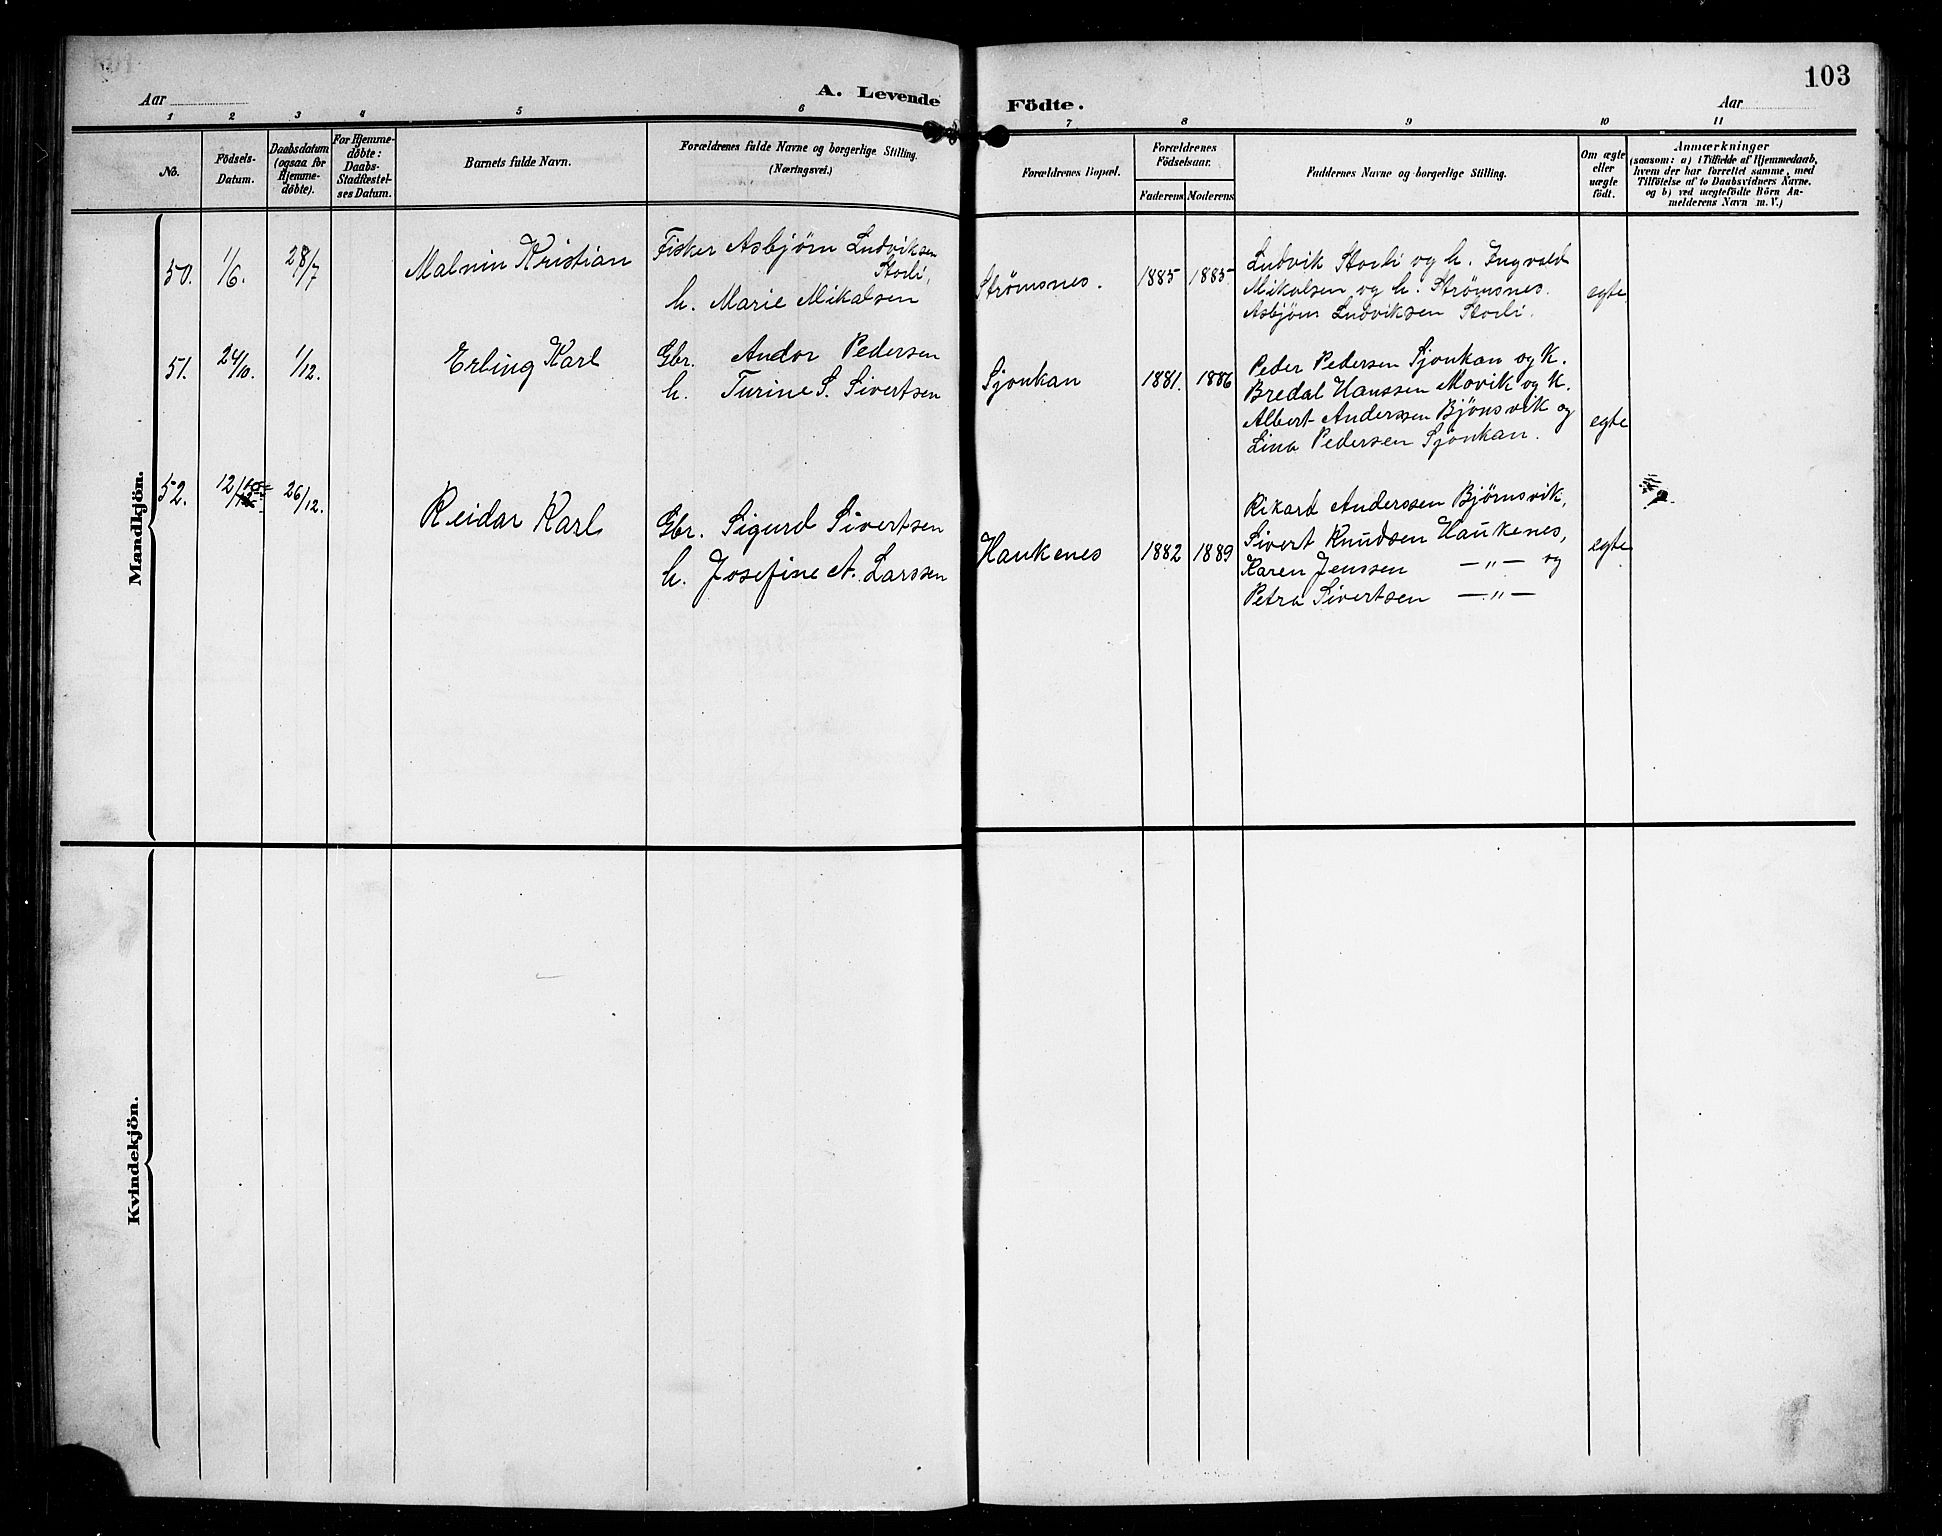 103
Aar
A. Levende Födte.
Aar
1 2 3 4 5 6 7 8 9 10 11
No.
Födsels-
Datum.
Daabsdatum
(ogsaa for
Hjemme-
döbte).
For Hjemme-
döbte:
Daabs-
Stadfæstel-
ses Datum.
Barnets fulde Navn.
Forældrenes fulde Navne og borgerlige Stilling.
(Næringsvei.)
Forældrenes Bopæl.
Forældrenes
Födselsaar.
Faderens Moderens
Faddernes Navne og borgerlige Stilling.
Om ægte
eller
uægte
födt.
Anmærkninger
(saasom: a) i Tilfælde af Hjemmedaab,
hvem der har forrettet samme, med
Tilföielse af to Daabsvidners Navne,
og b) ved uægtefödte Börn An-
melderens Navn m. V.)
Mandkjön.
50. 1/6. 28/7 Malvin Kristian
Fisker Asbjørn Ludviksen
Storli,
h. Marie Mikalsen
Strømsnes. 1885 1885
Ludvik Storli og h. Ingvald
Mikalsen og h. Strømsnes.
Asbjørn Ludviksen Storli.
egte
51. 24/10. 1/12. Erling Karl
Gbr. Andor Pedersen
h. Turine S. Sivertsen
Sjonkan 1881. 1886
Peder Pedersen Sjonkan og K.
Bredal Hanssen Movik og K.
Albert Anderssen Bjönsvik og
Lina Pedersen Sjonkan.
egte
52. 12/10 26/12. Reidar Karl
Gbr. Sigurd Sivertsen
h. Josefine A. Larssen
Haukenes 1882 1889
Rikard Anderssen Bjørnsvik,
Sivert Knudsen Haukenes,
Karen Jenssen —„— og
Petra Sivertsen —„—
egte
Kvindekjön.